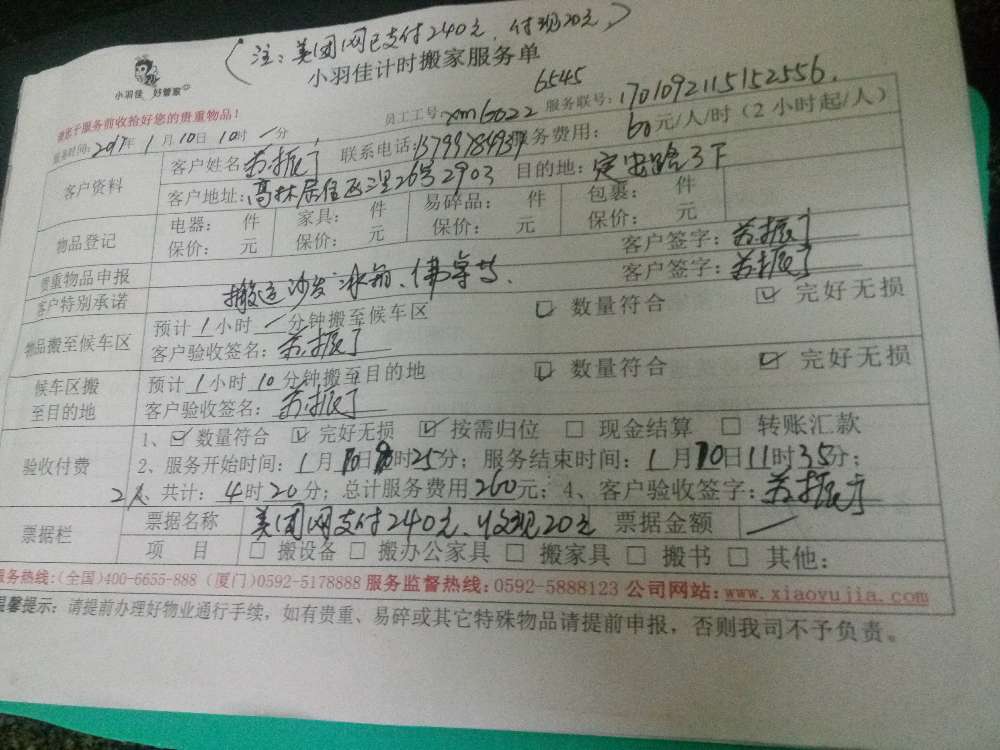 (注：美团网已支付240元，付现20元)
小羽佳计时搬家服务单
小羽佳 好管家
请您于服务前收拾好您的贵重物品！
员工工号：xm6022 6545 服务联号：1701092115152556.
服务时间：2017年1月10日10时一分
客户资料
客户姓名 苏振了 联系电话： 务费用：60元/人/时（2小时起/人）
客户地址：高林居住区三里26号2903 目的地：定安路3下
物品登记
电器： 件 家具： 件 易碎品： 件 包裹： 件
保价： 元 保价： 元 保价： 元 保价： 元
贵重物品申报 客户签字：苏振了
客户特别承诺 搬运沙发 冰箱、佛尊 客户签字：苏振了
物品搬至候车区
预计1小时一分钟搬至候车区 数量符合 完好无损
客户验收签名：苏振了
候车区搬至目的地
预计1小时10分钟搬至目的地 数量符合 完好无损
客户验收签名：苏振了
验收付费
1、数量符合 完好无损 按需归位 现金结算 转账汇款
2、服务开始时间：1月10日 时25分；服务结束时间：1月10日11时35分；
2人 共计：4时20分；总计服务费用260元；4、客户验收签字：苏振了
票据栏
票据名称 美团网支付240元、收现20元 票据金额 一
项 目 搬设备 搬办公家具 搬家具 搬书 其他：
服务热线：(全国)400-6655-888 (厦门)0592-5178888 服务监督热线：0592-5888123 公司网站：www.xiaoyujia.com
温馨提示：请提前办理好物业通行手续，如有贵重、易碎或其它特殊物品请提前申报，否则我司不予负责。